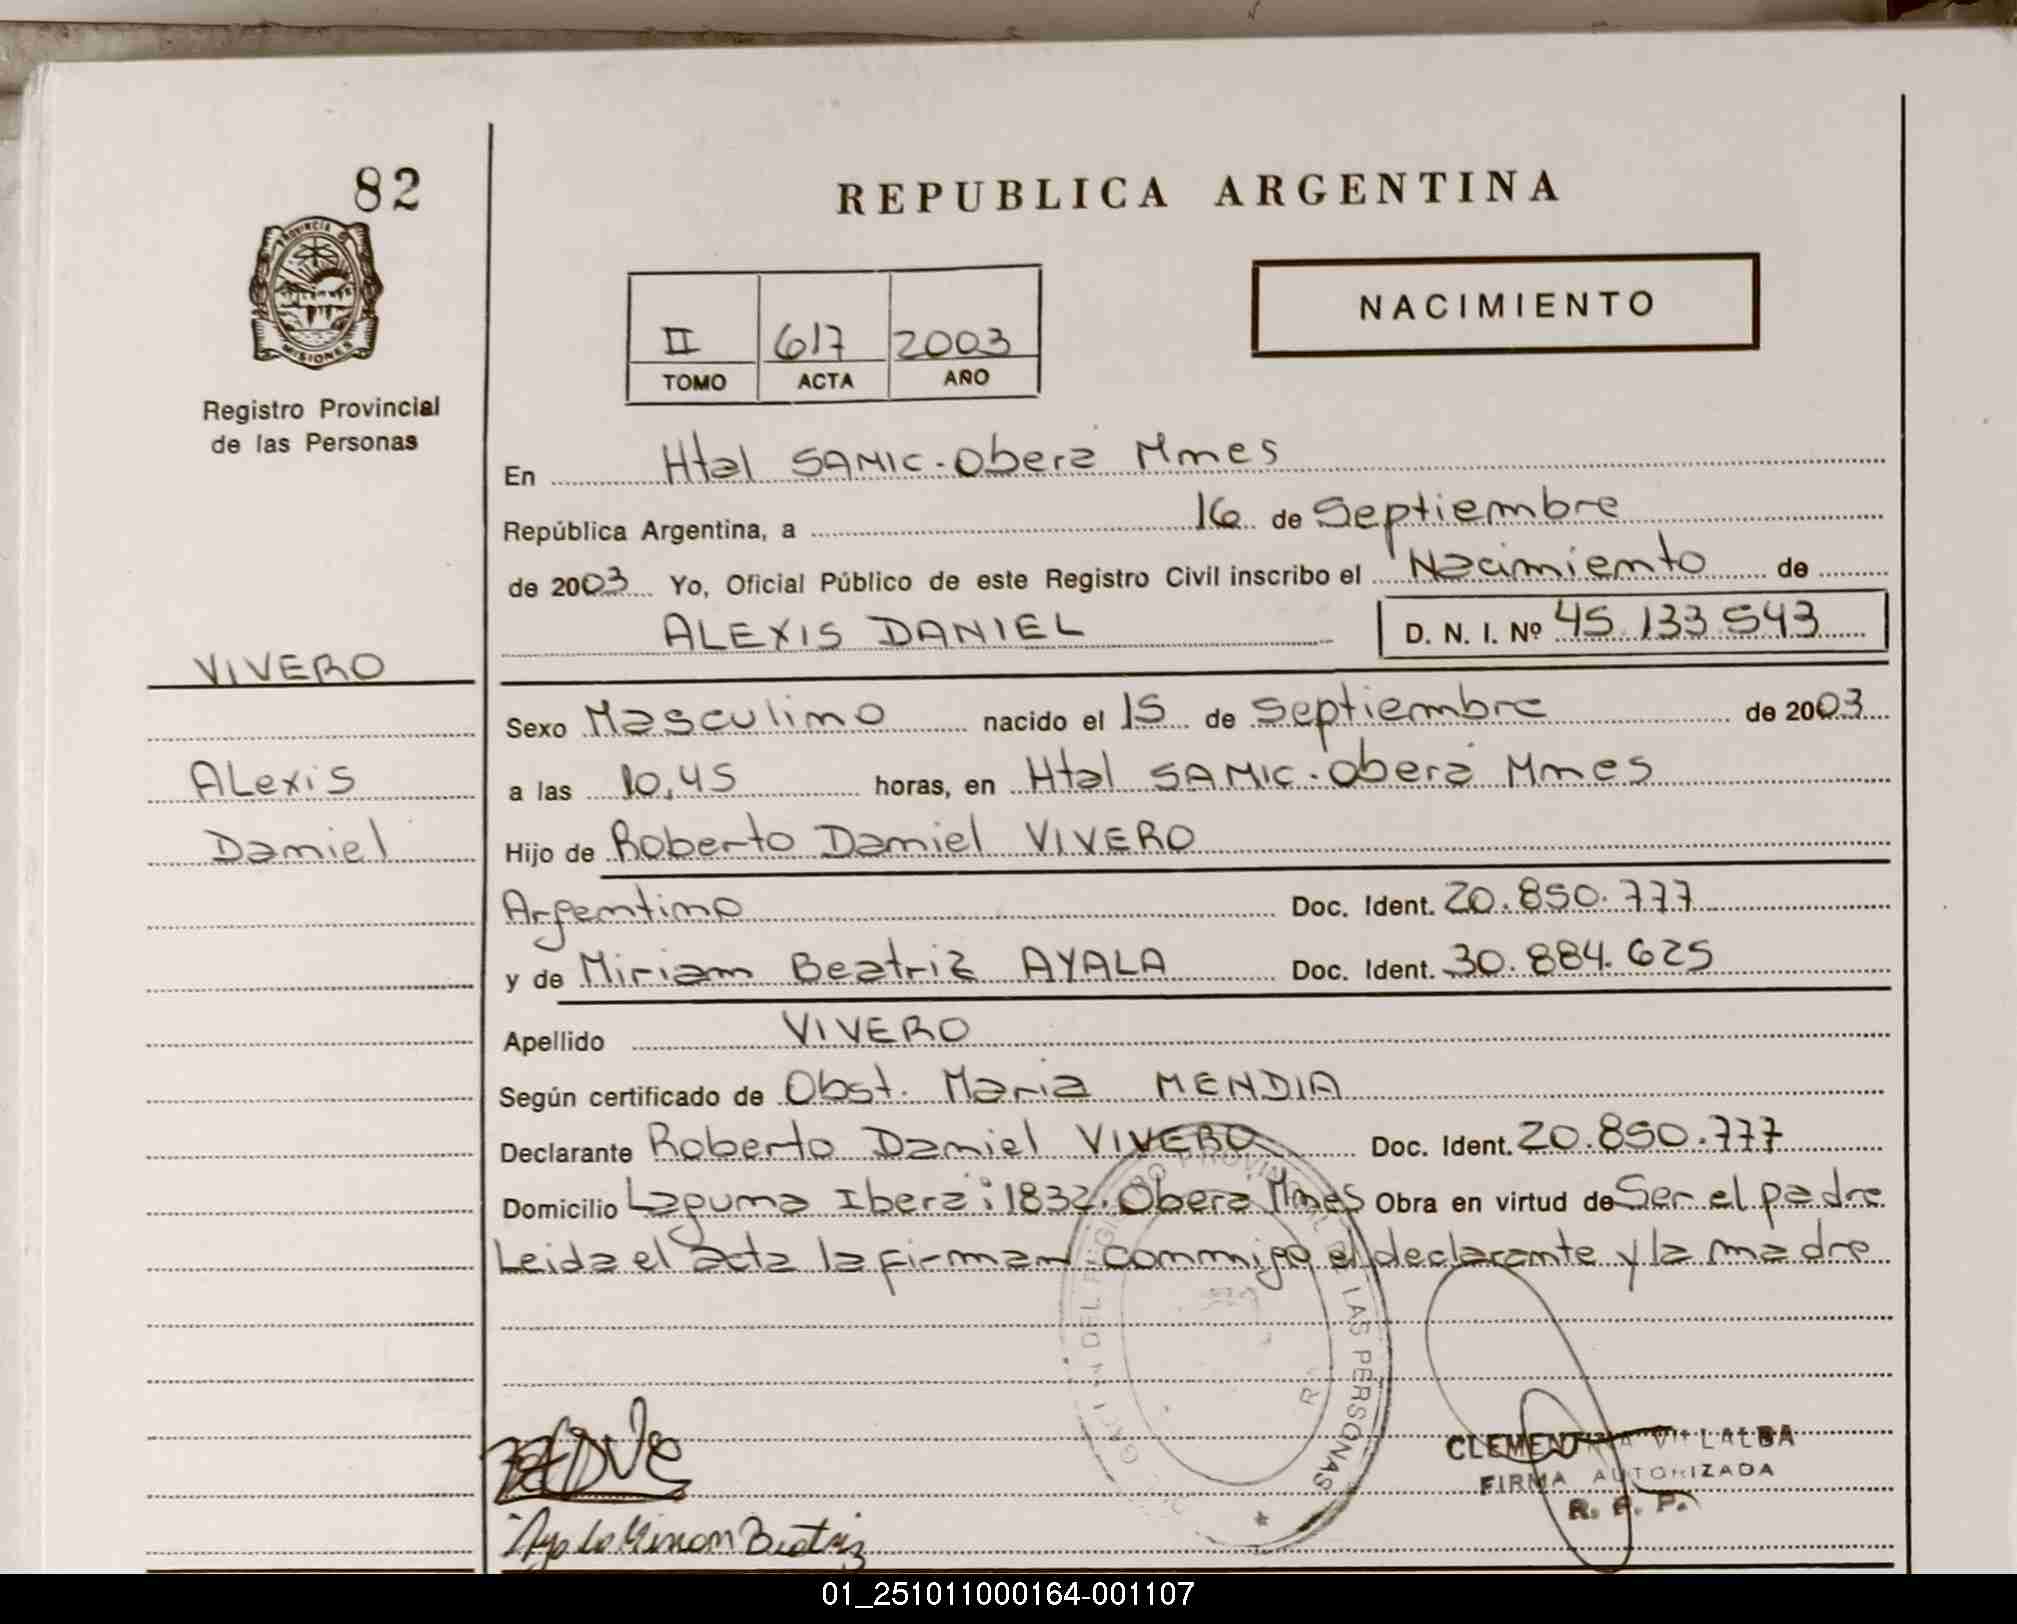 82
REPUBLICA ARGENTINA
PROVINCIA DE MISIONES
NACIMIENTO
II 617 2003
TOMO ACTA AÑO
Registro Provincial
de las Personas
En Htal SAMIC.Oberá Mnes
República Argentina, a 16 de Septiembre
de 2003 Yo, Oficial Público de este Registro Civil inscribo el Nacimiento de
ALEXIS DANIEL D. N. I. Nº 45.133.543
VIVERO
Alexis
Daniel
Sexo Masculino nacido el 15 de Septiembre de 2003
a las 10,45 horas, en Htal SAMIC.Oberá Mnes
Hijo de Roberto Daniel VIVERO
Argentino Doc. Ident. 20.850.777
y de Miriam Beatriz AYALA Doc. Ident. 30.884.625
Apellido VIVERO
Según certificado de Obst. Maria MENDIA
Declarante Roberto Daniel VIVERO Doc. Ident. 20.850.777
Domicilio Laguna Iberá: 1832. Oberá Mnes Obra en virtud de Ser el padre
Leida el acta la firman conmigo el declarante y la madre
REGISTRO PROVINCIAL DE LAS PERSONAS
CLEMENTINA VILLALBA
FIRMA AUTORIZADA
R. P. P.
Ayala Miriam Beatriz
01_251011000164-001107